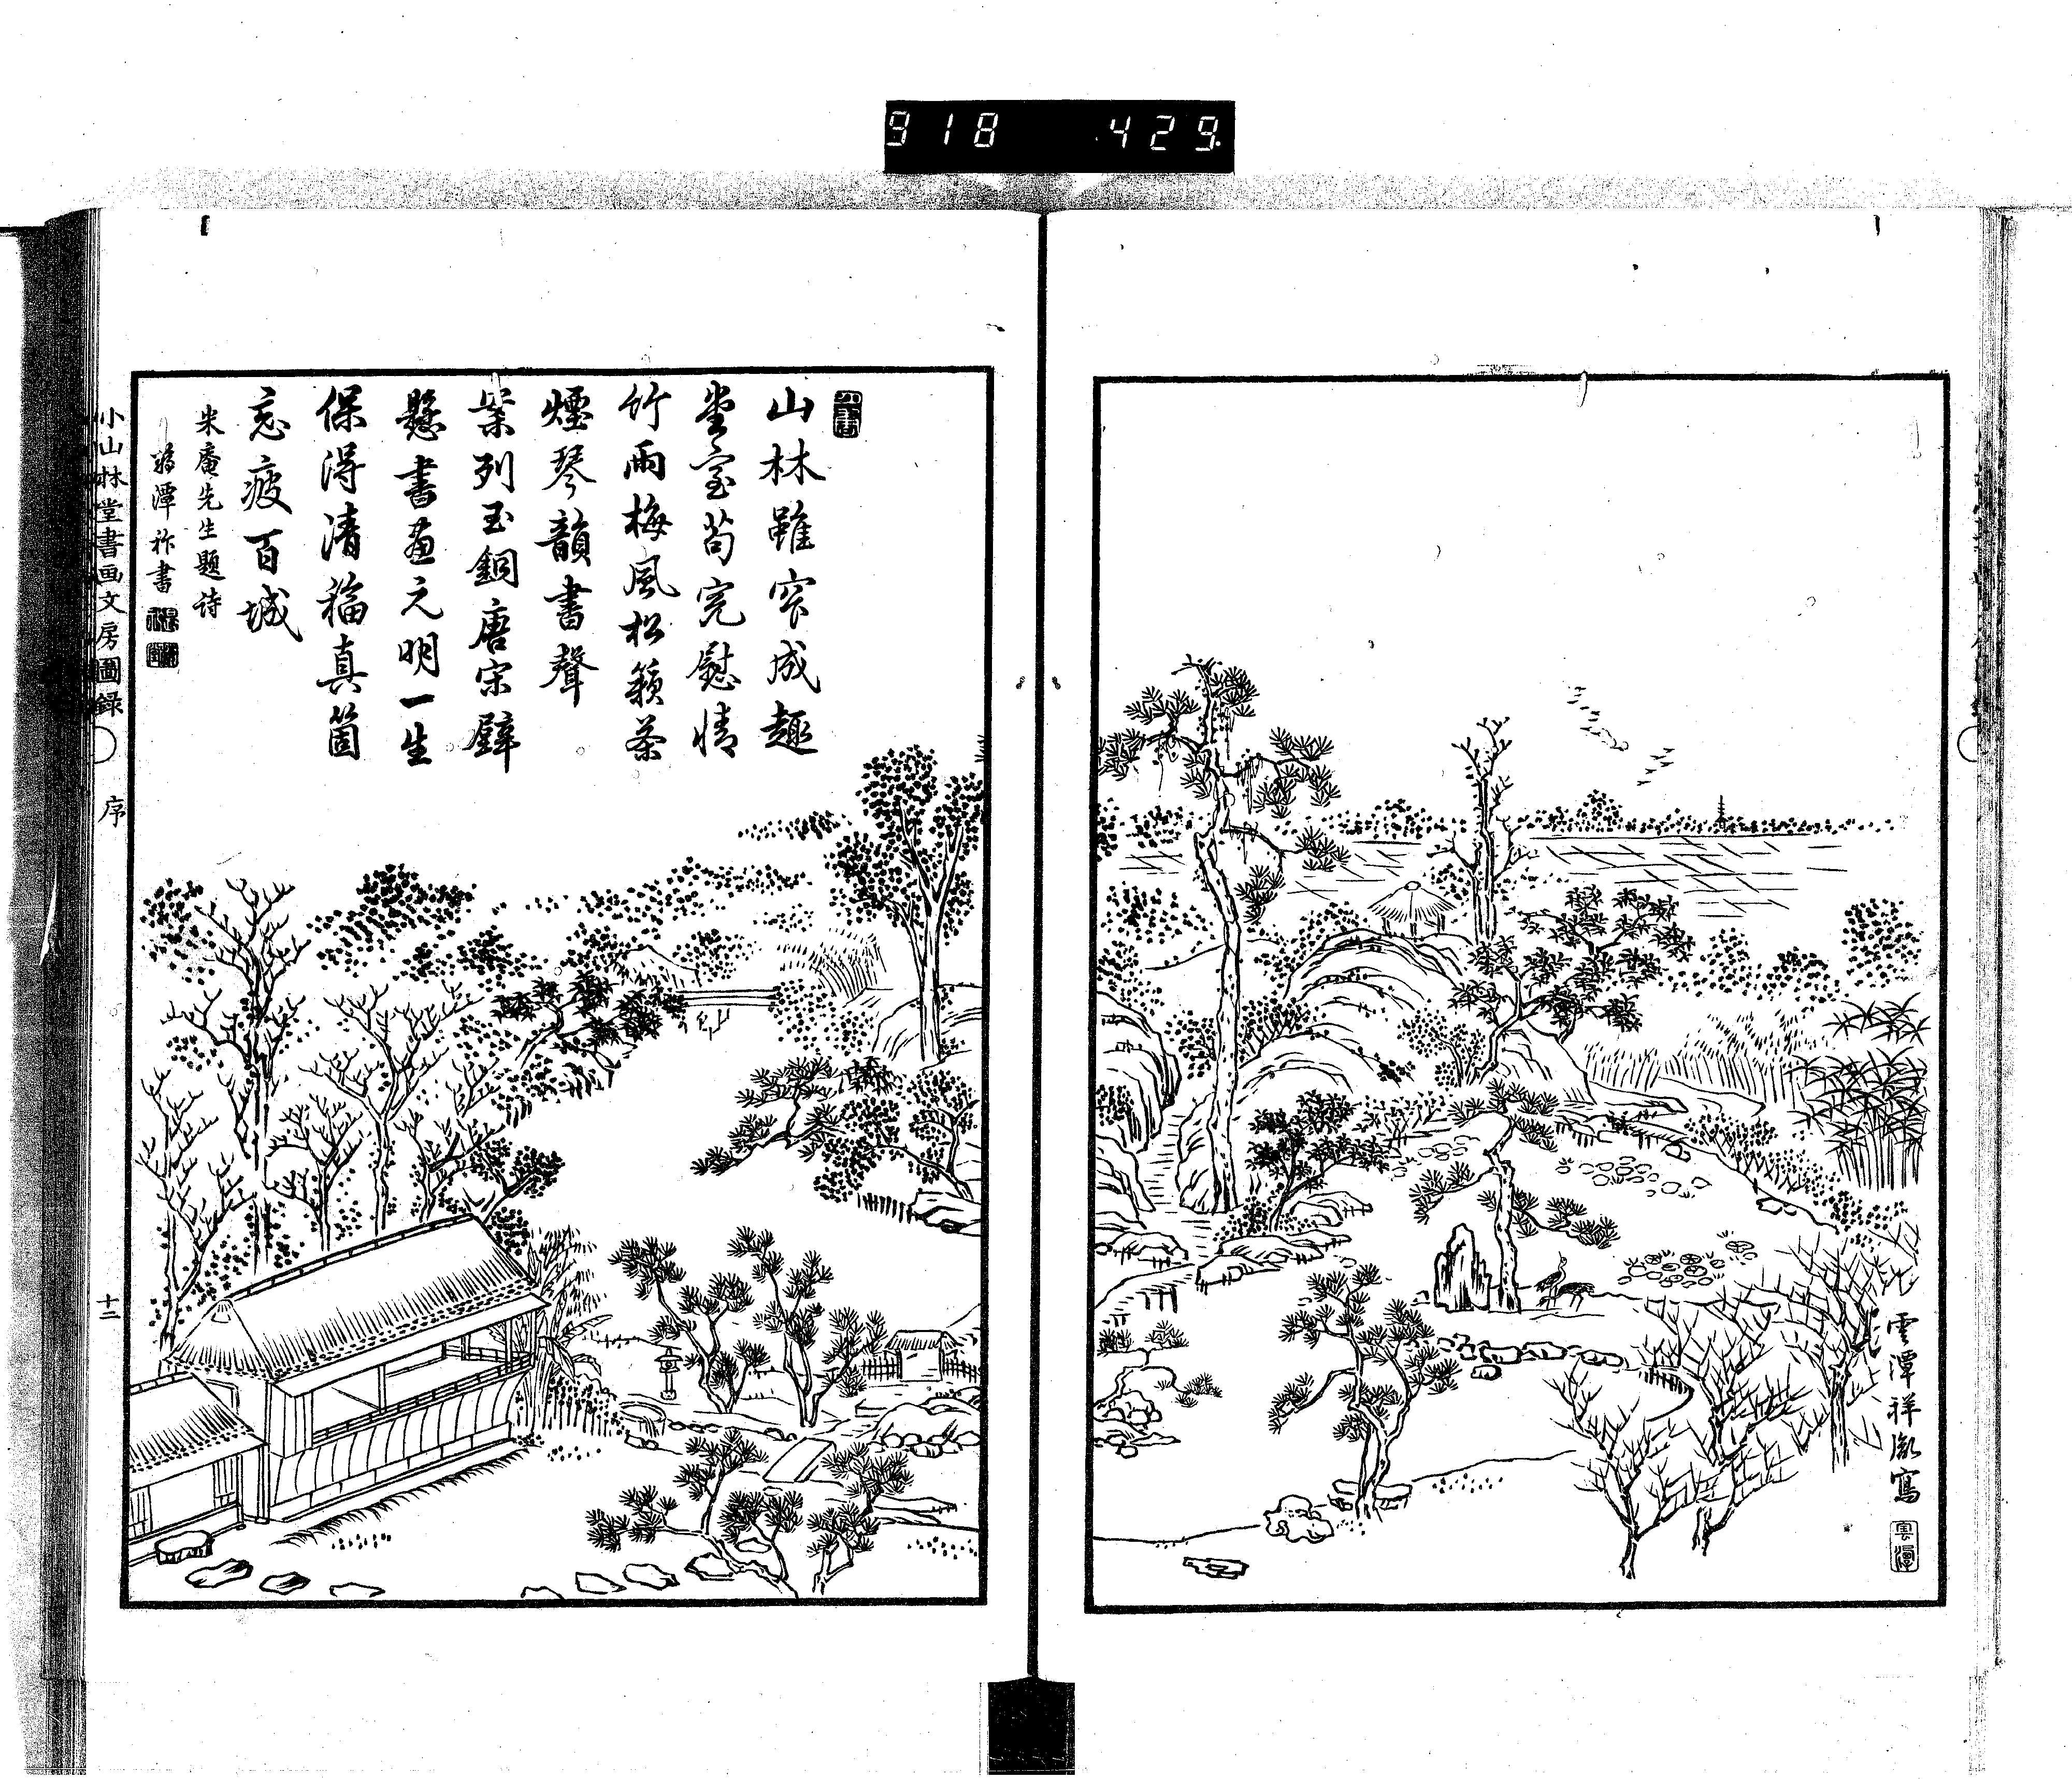 918 429
雲潭祥胤寫
雲潭
山林雖窄成趣
堂室苟完慰情
竹雨梅風松籟茶
煙琴韻書聲
案列玉銅唐宋壁
懸書畫元明一生
保得清福真箇
忘疲百城
米庵先生題詩
潭祚書
小山林堂書画文房圖録 序 十二